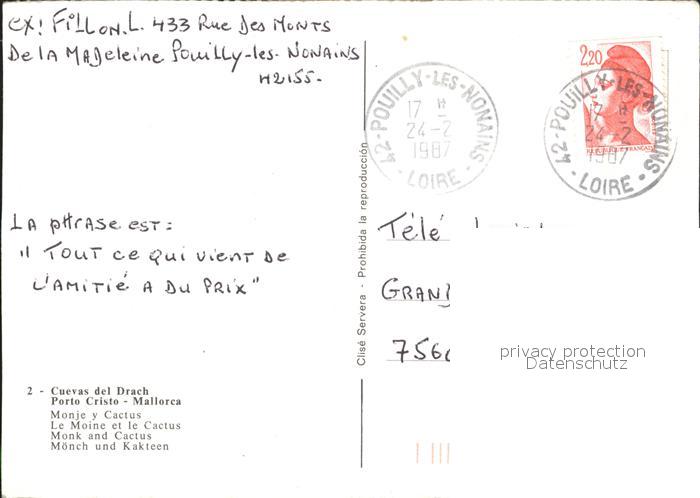 ex: FilloN.L. 433 Rue Des Monts
De la Madeleine Pouilly-les-Nonains
42155-
La phrase est:
"Tout ce qui vient de
l'amitié a du prix"
2 - Cuevas del Drach
Porto Cristo - Mallorca
Monje y Cactus
Le Moine et le Cactus
Monk and Cactus
Mönch und Kakteen
Clisé Servera - Prohibida la reproducción
42-POUILLY-LES-NONAINS
17 H
24-2
1987
- LOIRE -
2,20
REPUBLIQUE FRANÇAISE
42-POUILLY-LES-NONAINS
17 H
24-2
1987
- LOIRE -
Télé
GRAND
756
privacy protection
Datenschutz